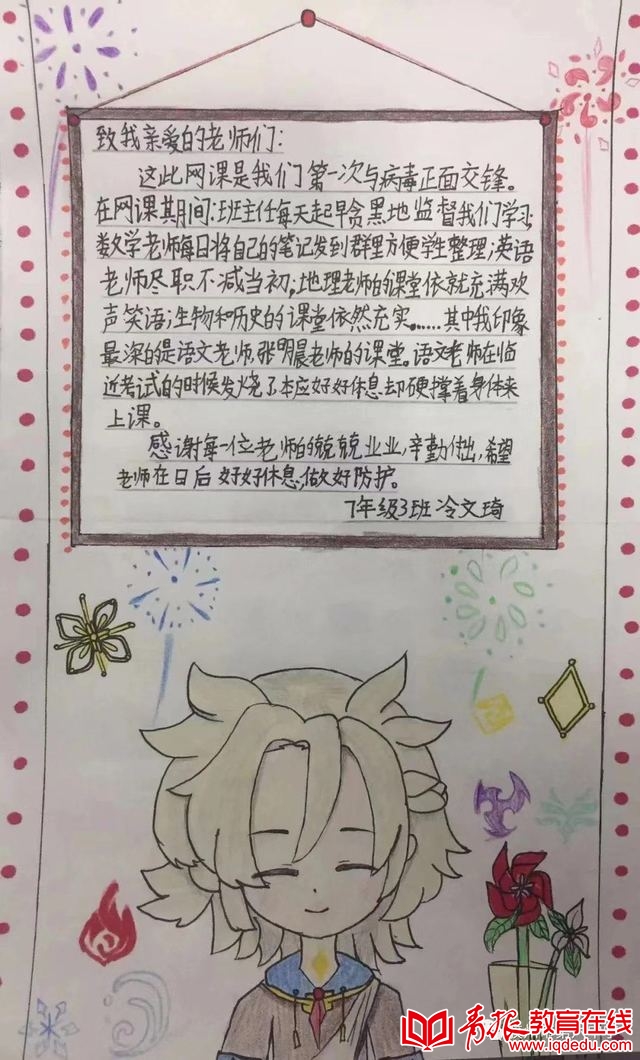 致我亲爱的老师们:
这此网课是我们第一次与病毒正面交锋。
在网课其期间:班主任每天起早贪黑地监督我们学习
数学老师每日将自己的笔记发到群里方便学生整理;英语
老师尽职不减当初;地理老师的课堂依就充满欢
声笑语;生物和历史的课堂依然充实......其中我印象
最深的是语文老师,张明晨老师的课堂。语文老师在临
近考试的时候发烧了本应好好休息却硬撑着身体来
上课。
感谢每一位老师的兢兢业业,辛勤付出,希望
老师在日后好好休息,做好防护。
7年级3班冷文琦
青报教育在线
www.iqdedu.com